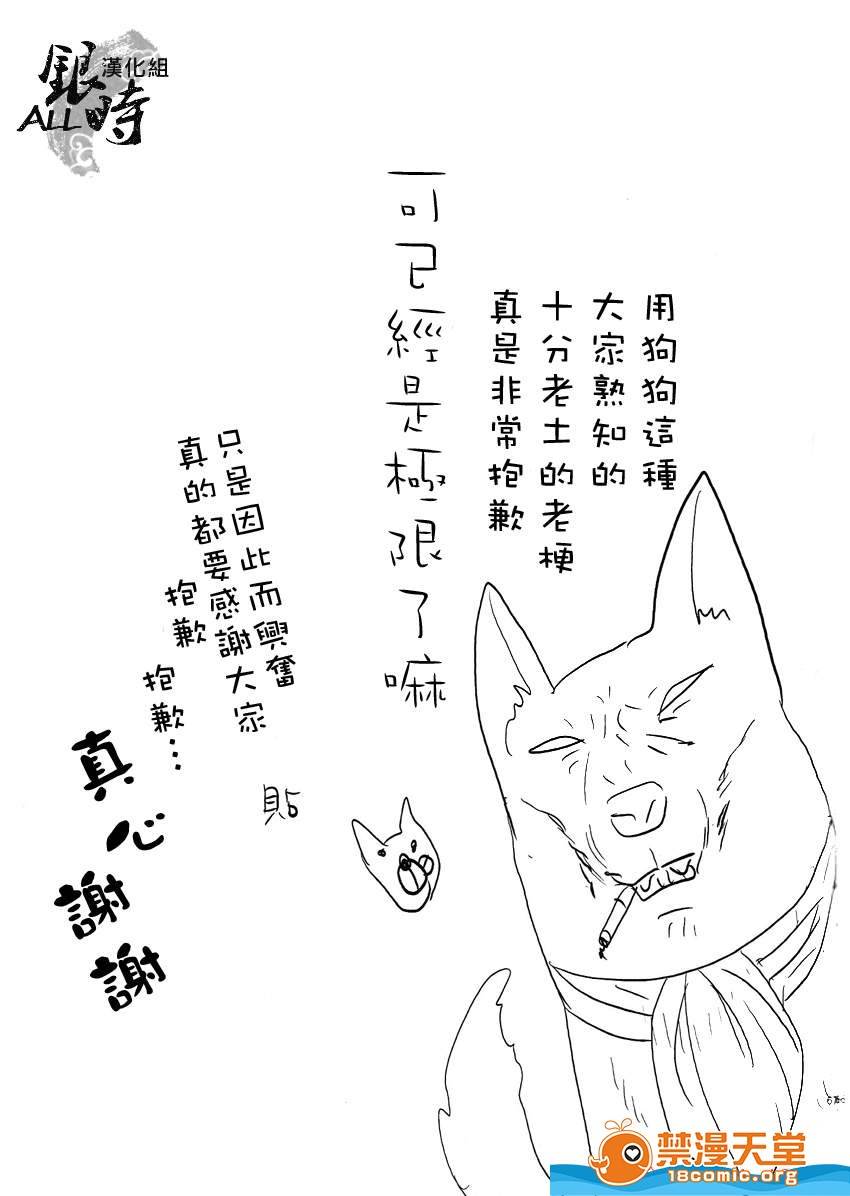 銀時
漢化組
ALL
用狗狗這種
大家熟知的
十分老土的老梗
真是非常抱歉
可已經是極限了嘛
只是因此而興奮
真的都要感謝大家
抱歉
抱歉…
真心謝謝
貼
禁漫天堂
18comic.org